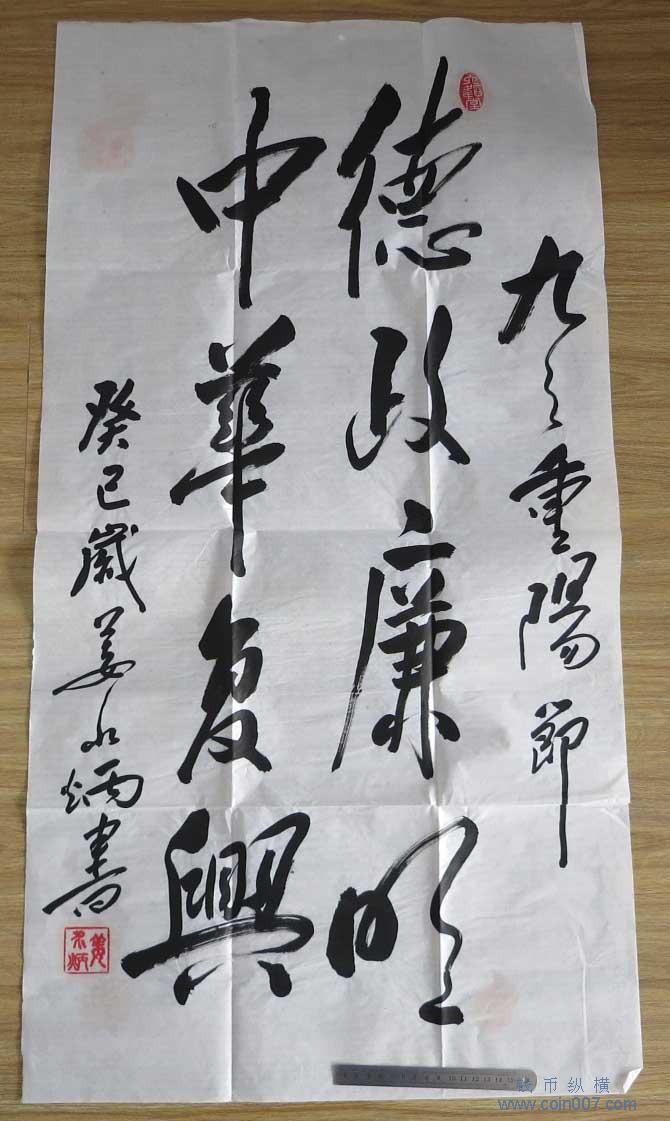 九九重陽節
德政廉明
中華复興
癸巳歲姜永炳書
姜永炳
钱币纵横
www.coin007.com